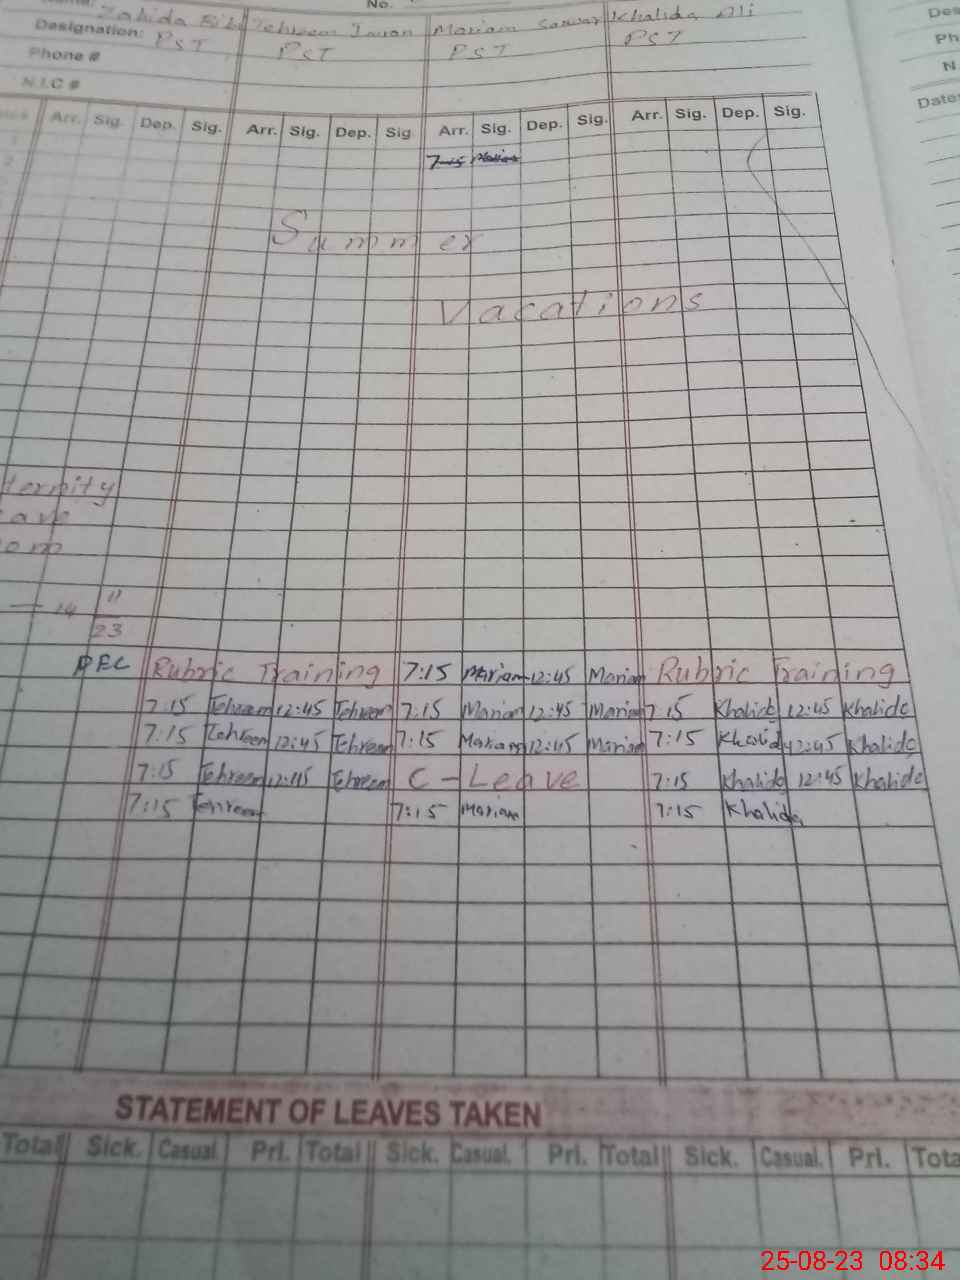 No.
Zahida Bibi Tehreem Imran Mariam Sarwar Khalida Ali
Designation: PST PST PST PST
Phone #
N.I.C #
Des
Ph
N.
Date
Arr. Sig. Dep. Sig. Arr. Sig. Dep. Sig Arr. Sig. Dep. Sig. Arr. Sig. Dep. Sig.
1
2
7-15 Mariam
Summer
Vacations
ternity
ave
om
14 11
23
Rubric Training 7:15 Mariam 12:45 Mariam Rubric Training
7:15 Tehreem 12:45 Tehreem 7:15 Mariam 12:45 Mariam 7:15 Khalida 12:45 Khalida
7:15 Tehreem 12:45 Tehreem 7:15 Mariam 12:45 Mariam 7:15 Khalida 12:45 Khalida
7:15 Tehreem 12:45 Tehreem C-Leave 7:15 Khalida 12:45 Khalida
7:15 Tehreem 7:15 Mariam 7:15 Khalida
STATEMENT OF LEAVES TAKEN
Total Sick. Casual. Pri. Total Sick. Casual. Pri. Total Sick. Casual. Pri. Tota
25-08-23 08:34